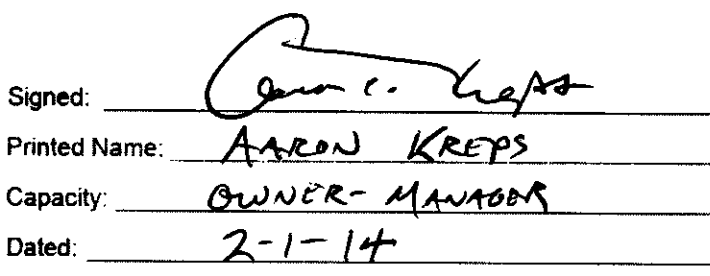 Signed: Aaron C. Kreps
Printed Name: AARON KREPS
Capacity: OWNER-MANAGER
Dated: 2-1-14